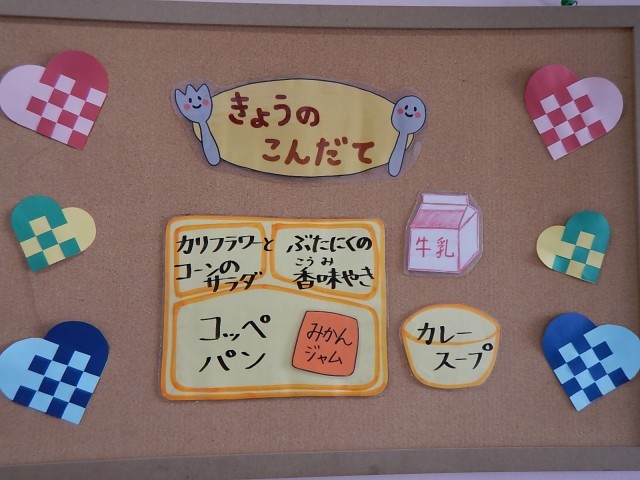 きょうの
こんだて
カリフラワーと
コーンの
サラダ
ぶたにくの
こうみ
香味やき
牛乳
コッペ
パン
みかん
ジャム
カレー
スープ